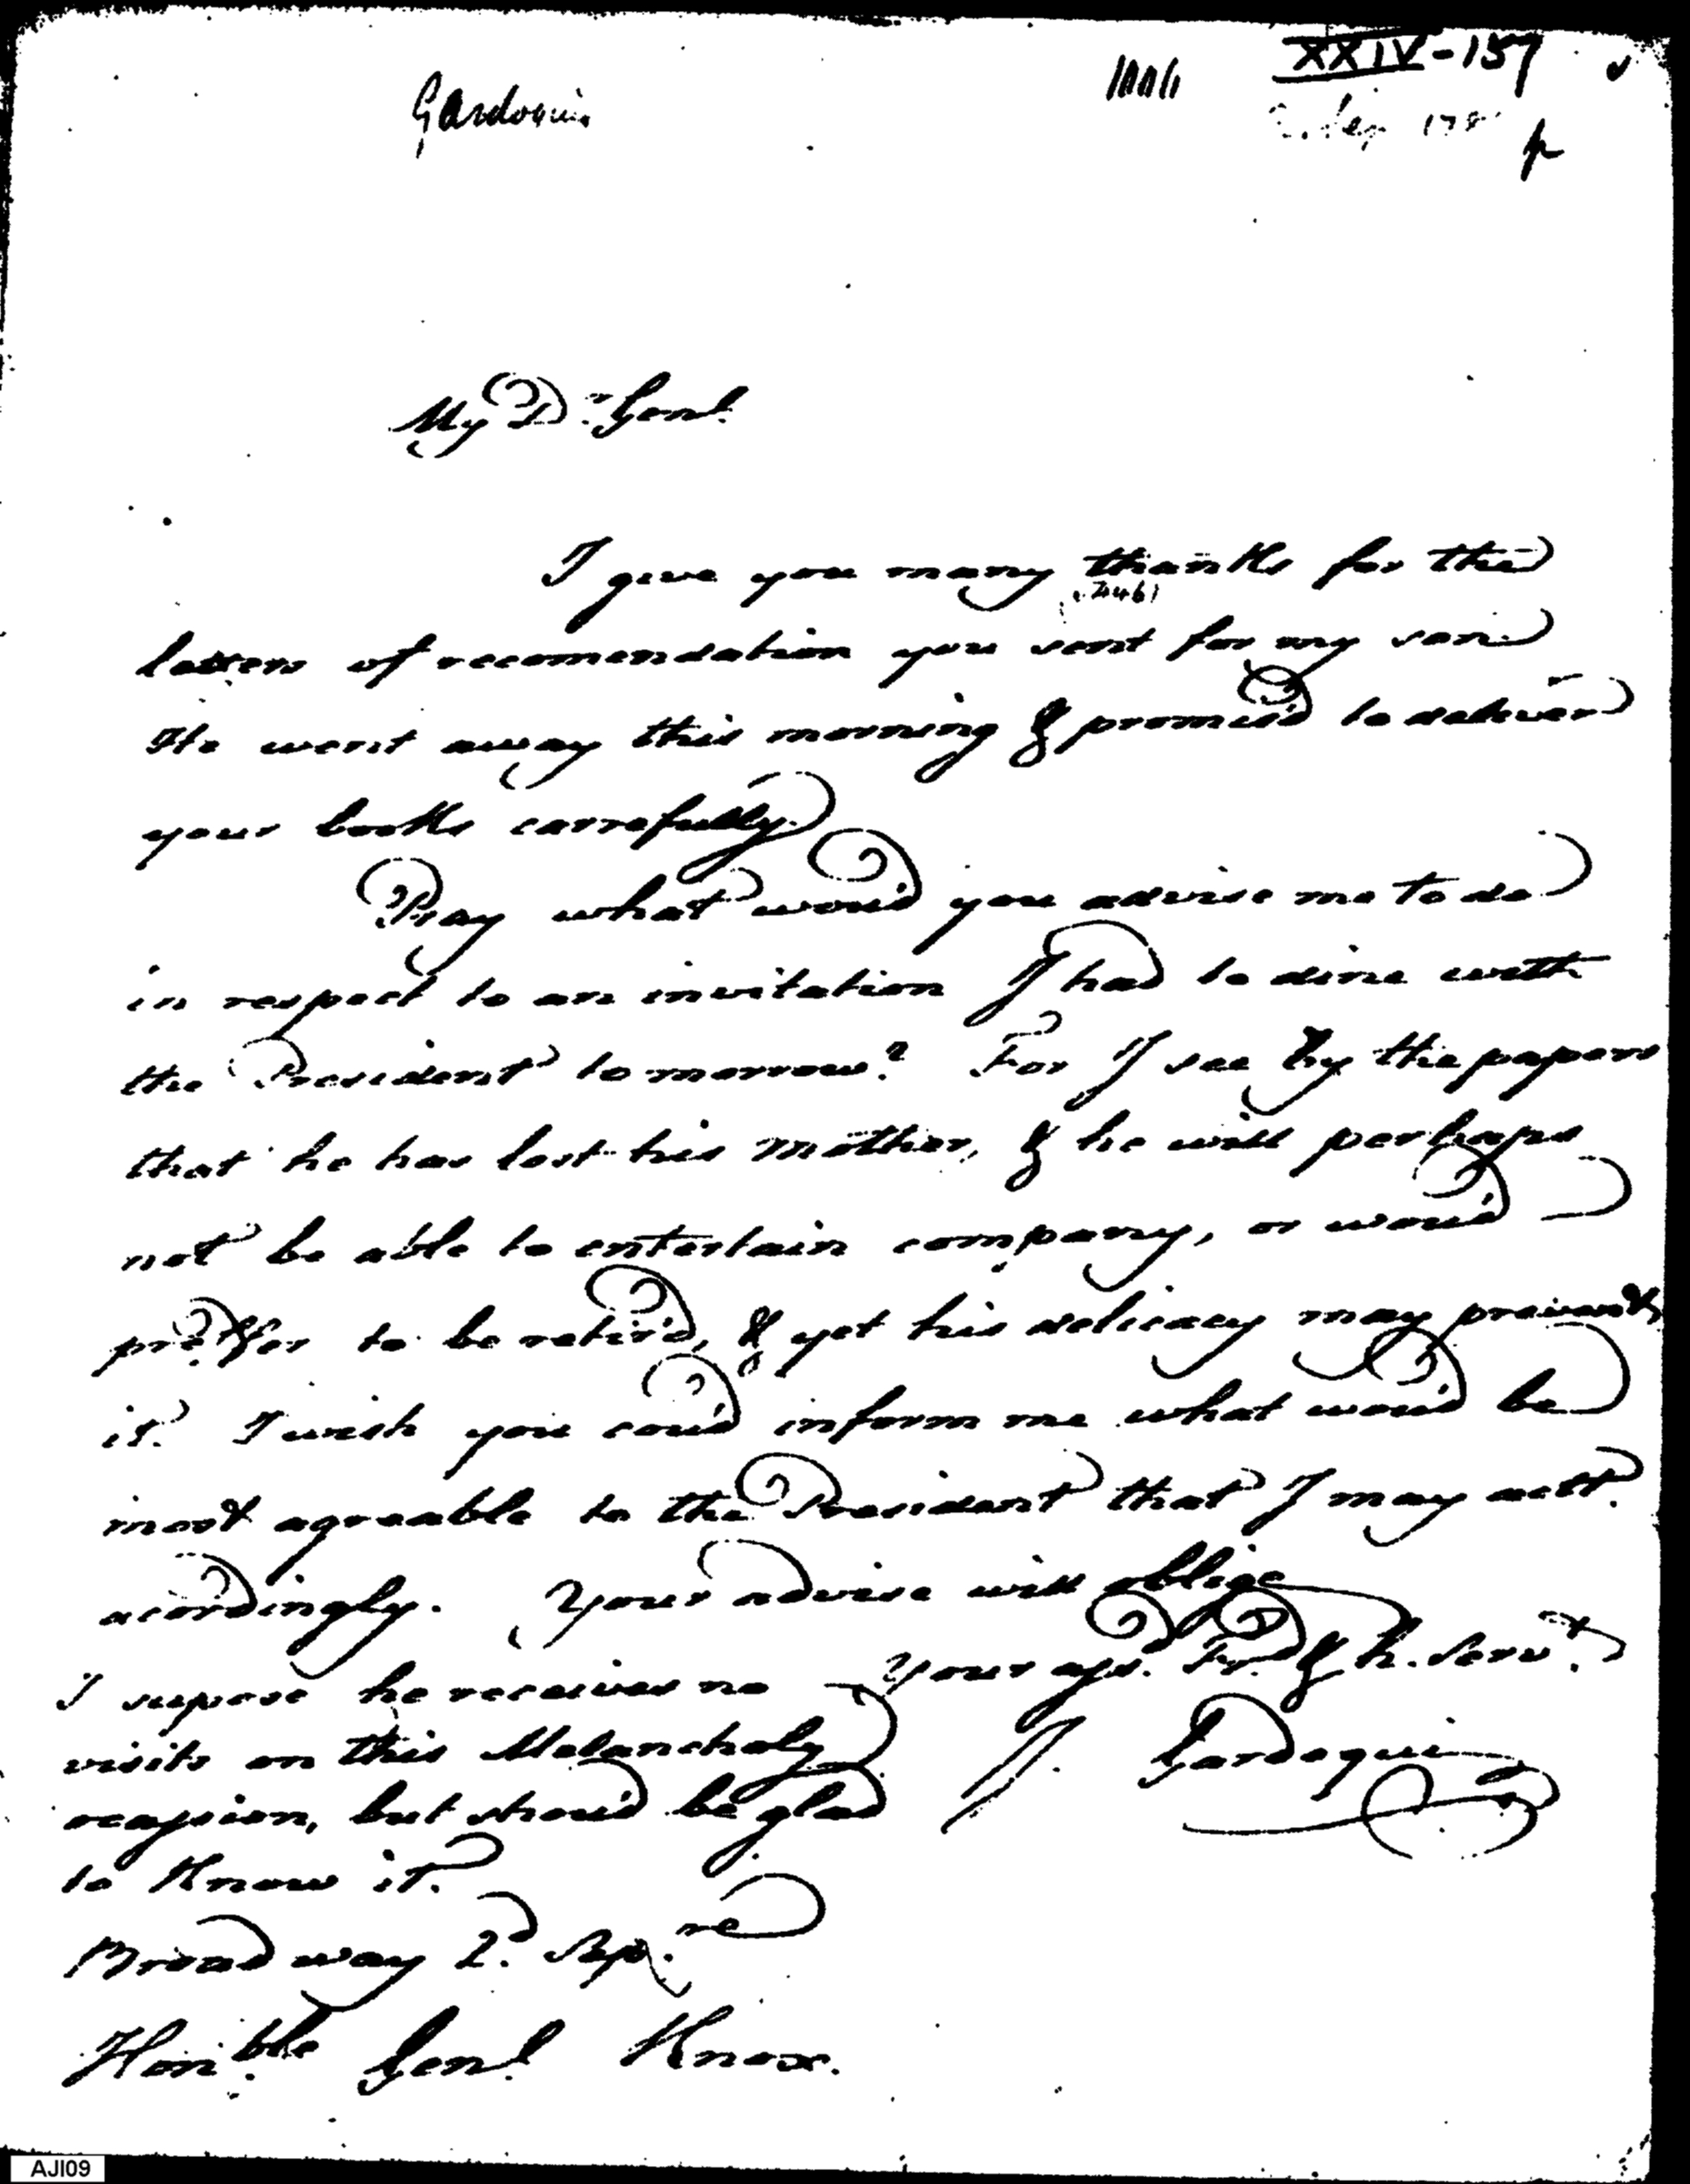 Gardoqui
XXIV-157
2. Sep 178
My Dr. Genl.
I give you many thanks for the
letters of recomendation you sent for my son
He went away this morning & promis'd to deliver
your books carrefully.
Pray what wou'd you advise me to do
in respect to an invitation I had to dine with
the President to morrow? For I see by the papers
that he has lost his mother, & he will perhaps
not be able to entertain company, or wou'd
preffer to be retir'd, & yet his delicacy may prevent
it. I wish you cou'd inform me what wou'd be
most agreable to the President that I may act
acordingly. Your advise will oblige
Your afd. Fr. & h. Servt.
J. Gardoqui
I supose he receives no
visits on this Melancholy
ocassion, but shou'd be glad
to Know it.
Broad way 2d. Sepre
Honble Genl Knox.
AJI09